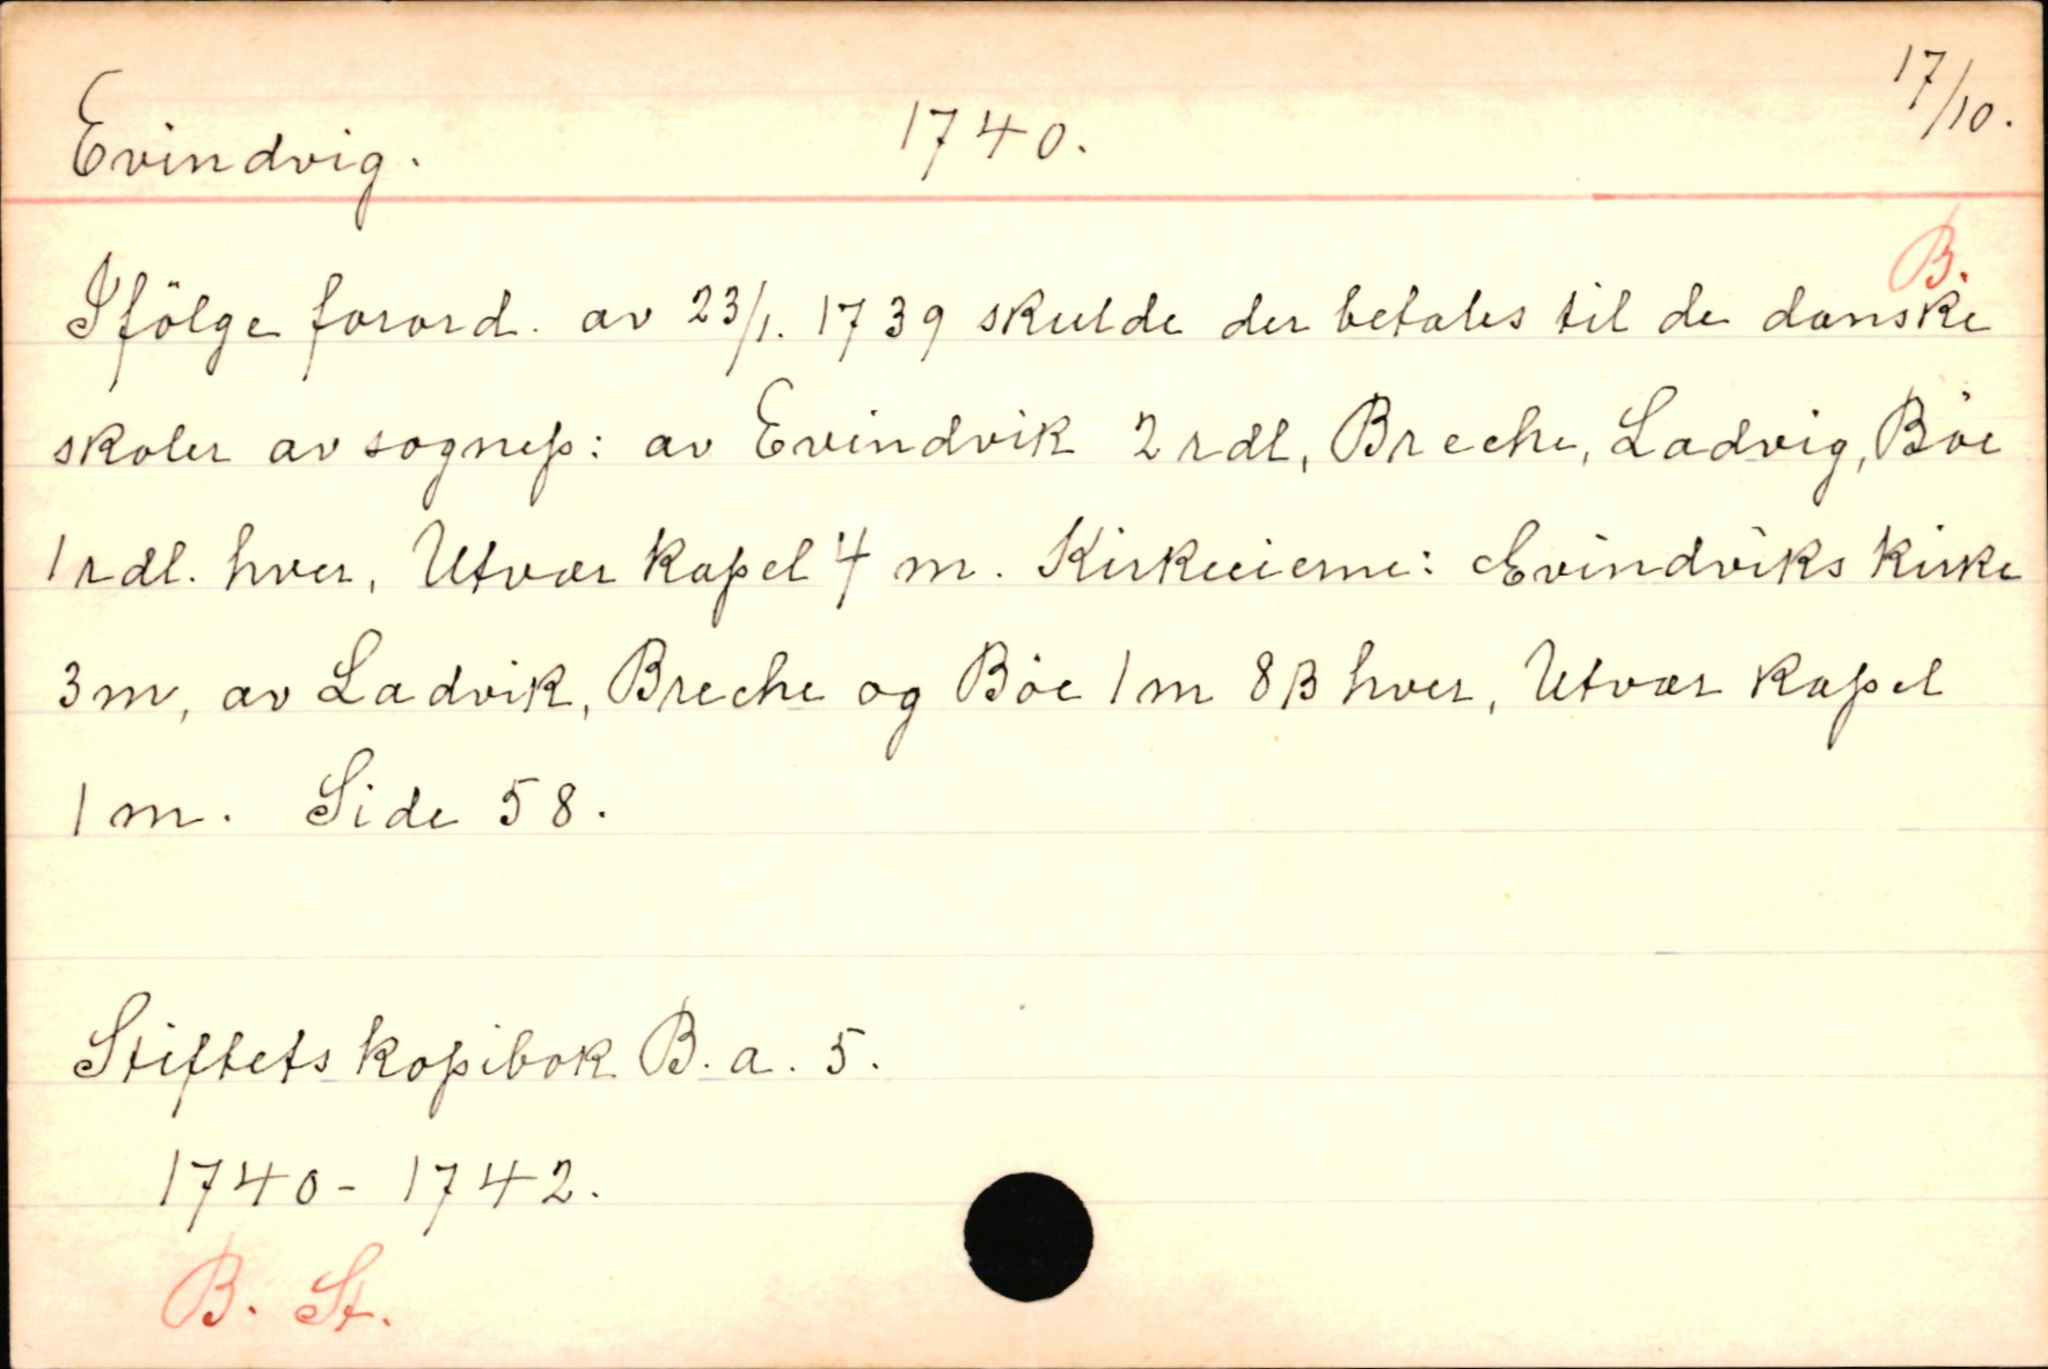 Evindvig. 1740. 17/10.
B.
Ifölge forord. av 23/1. 1739 skulde der betales til de danske
skoler av sognep: av Evindvik 2 rdl, Breche, Ladvig, Böe
1 rdl. hver, Utvær kapel 4 m. Kirkeeierne: Evindviks kirke
3 m, av Ladvik, Breche og Böe 1 m 8 β hver, Utvær kapel
1 m. Side 58.
Stiftets kopibok B. a. 5.
1740 - 1742.
B. St.